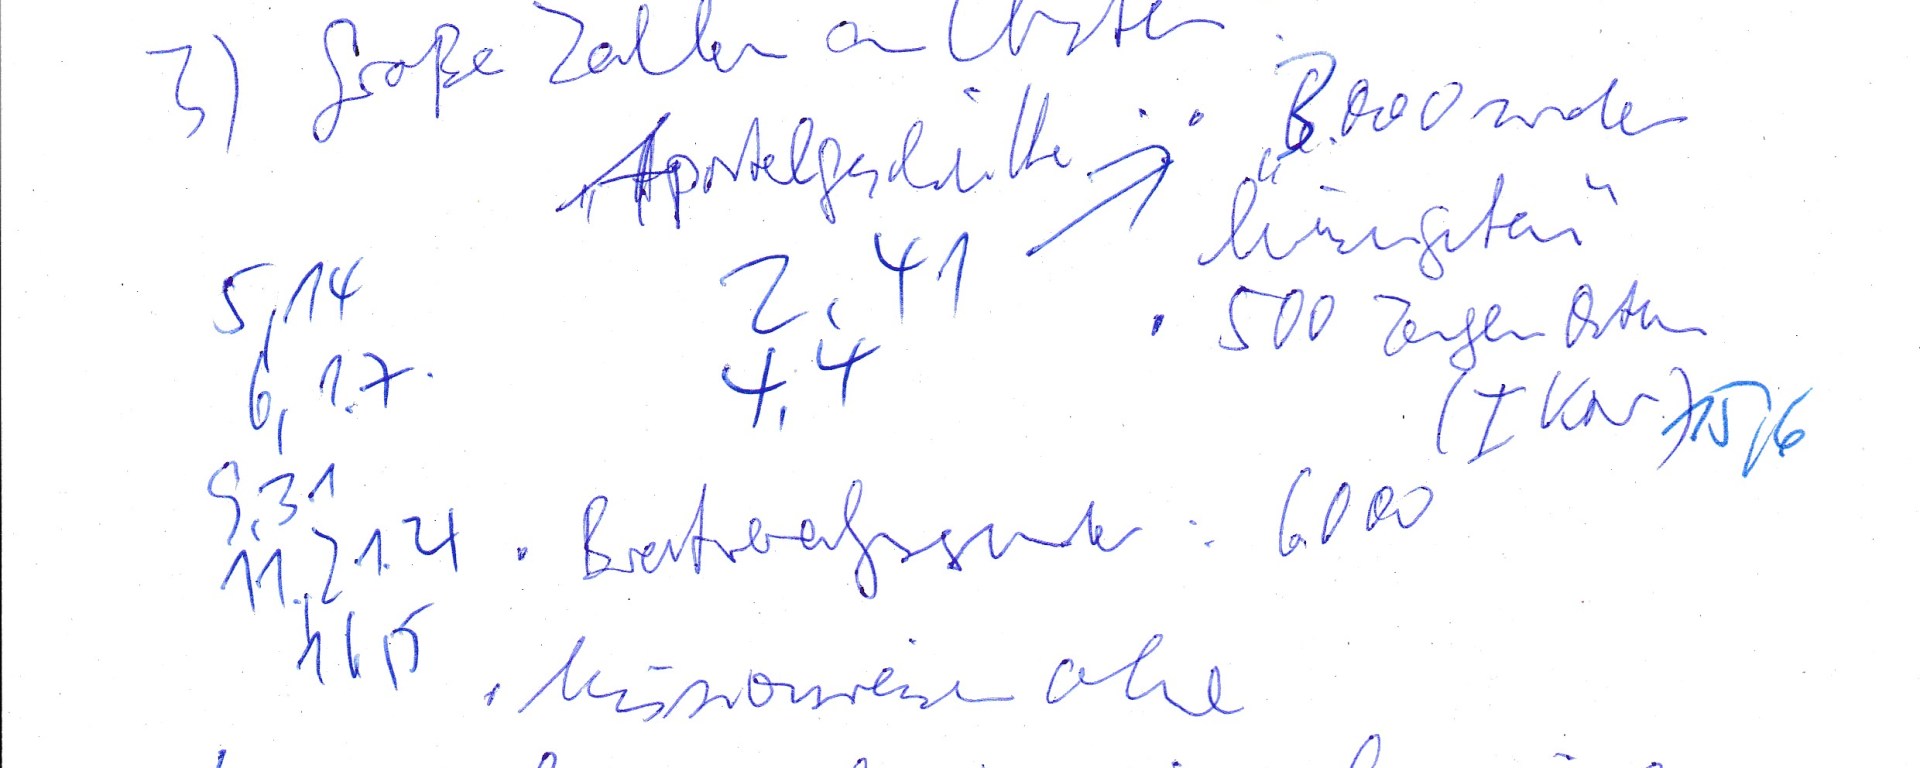 3) Große Zahlen an Christen
Apostelgeschichte :
• 3.000 wurden
5,14
2,41
6,1.7.
4,4
• 500 Zeugen Ostern
(I Kor) 15,6
9,31
11,21.24
• : 6.000
16,5
• Missionsreisen ohne